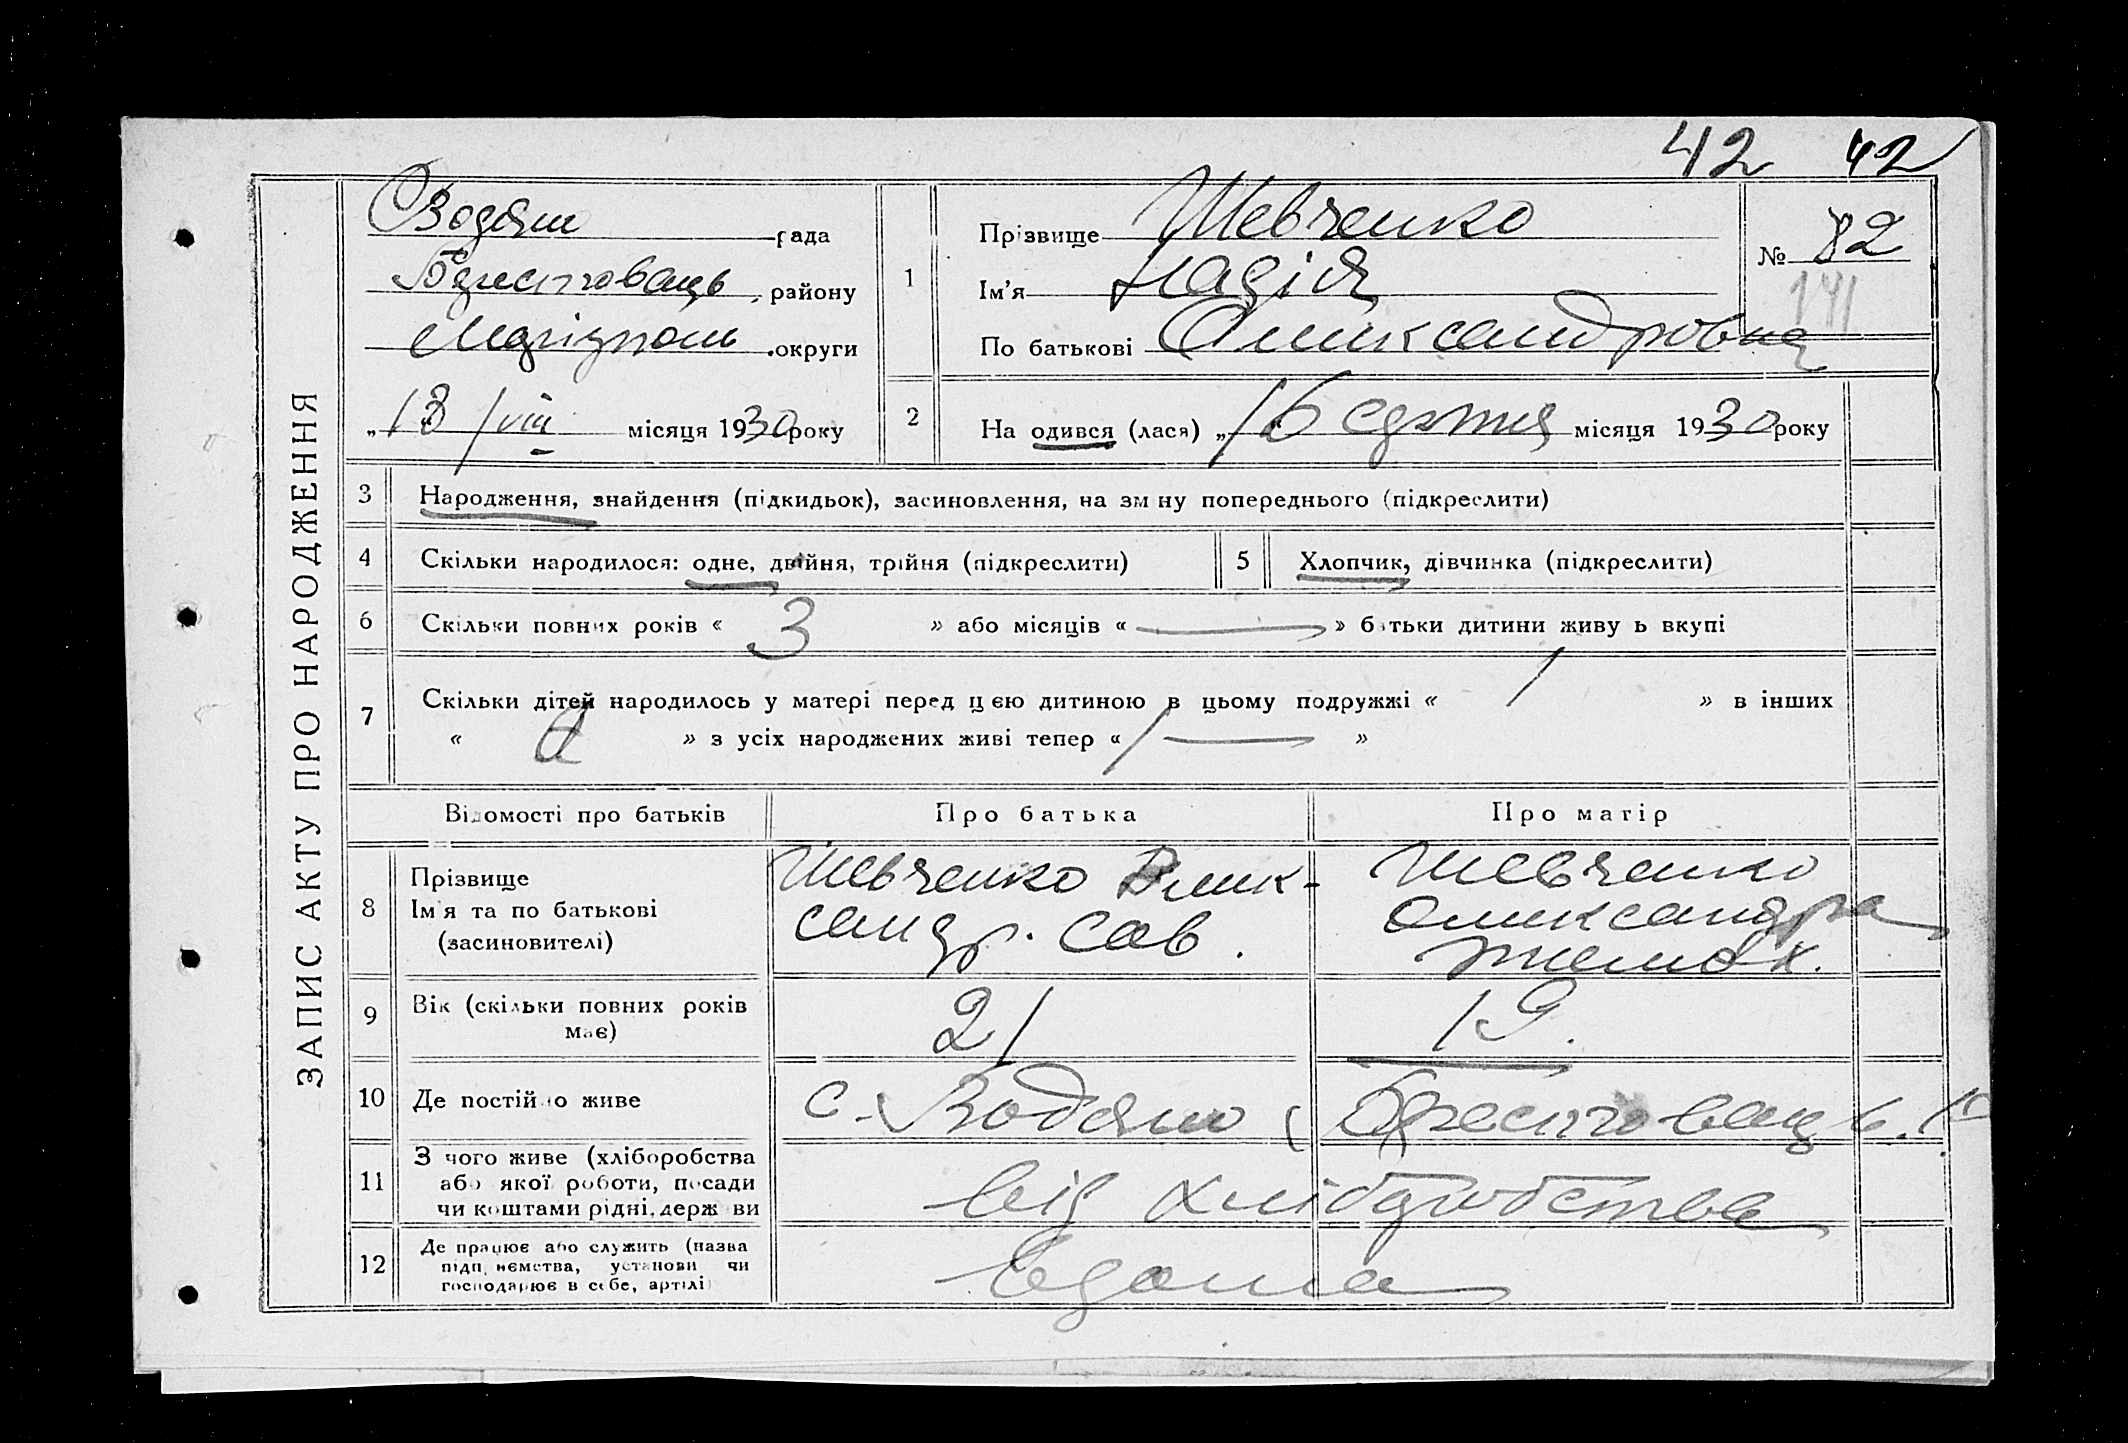 42 42
ЗАПИС АКТУ ПРО НАРОДЖЕННЯ
Водян рада
Берестоваць. району
Маріупол. округи
„18/VIII місяця 1930 року
1
Прізвище Шевченко
Ім'я Надія
По батькові Олександровна
№ 82
141
2
На одився (лася) „16 серпня місяця 1930 року
3 Народження, знайдення (підкидьок), засиновлення, на зм ну попереднього (підкреслити)
4 Скільки народилося: одне, двійня, трійня (підкреслити) 5 Хлопчик, дівчинка (підкреслити)
6 Скільки повних років « 3 » або місяців « — » батьки дитини живу ь вкупі
7 Скільки дітей народилось у матері перед цією дитиною в цьому подружжі « 1 » в інших
« » з усіх народжених живі тепер « 1 — »
Відомості про батьків Про батька Про матір
8 Прізвище
Ім'я та по батькові
(засиновителі)
Шевченко Олек-
сандр. Сав.
Шевченко
Олександра
9 Вік (скільки повних років
має)
21 19.
10 Де постійно живе с. Водяно (Берестоваць.
11 З чого живе (хліборобства
або якої роботи, посади
чи коштами рідні, держ ви
від хліборобства
12 Де працює або служить (назва
підп. ємства, установи чи
господарює в себе, артілі
вдома